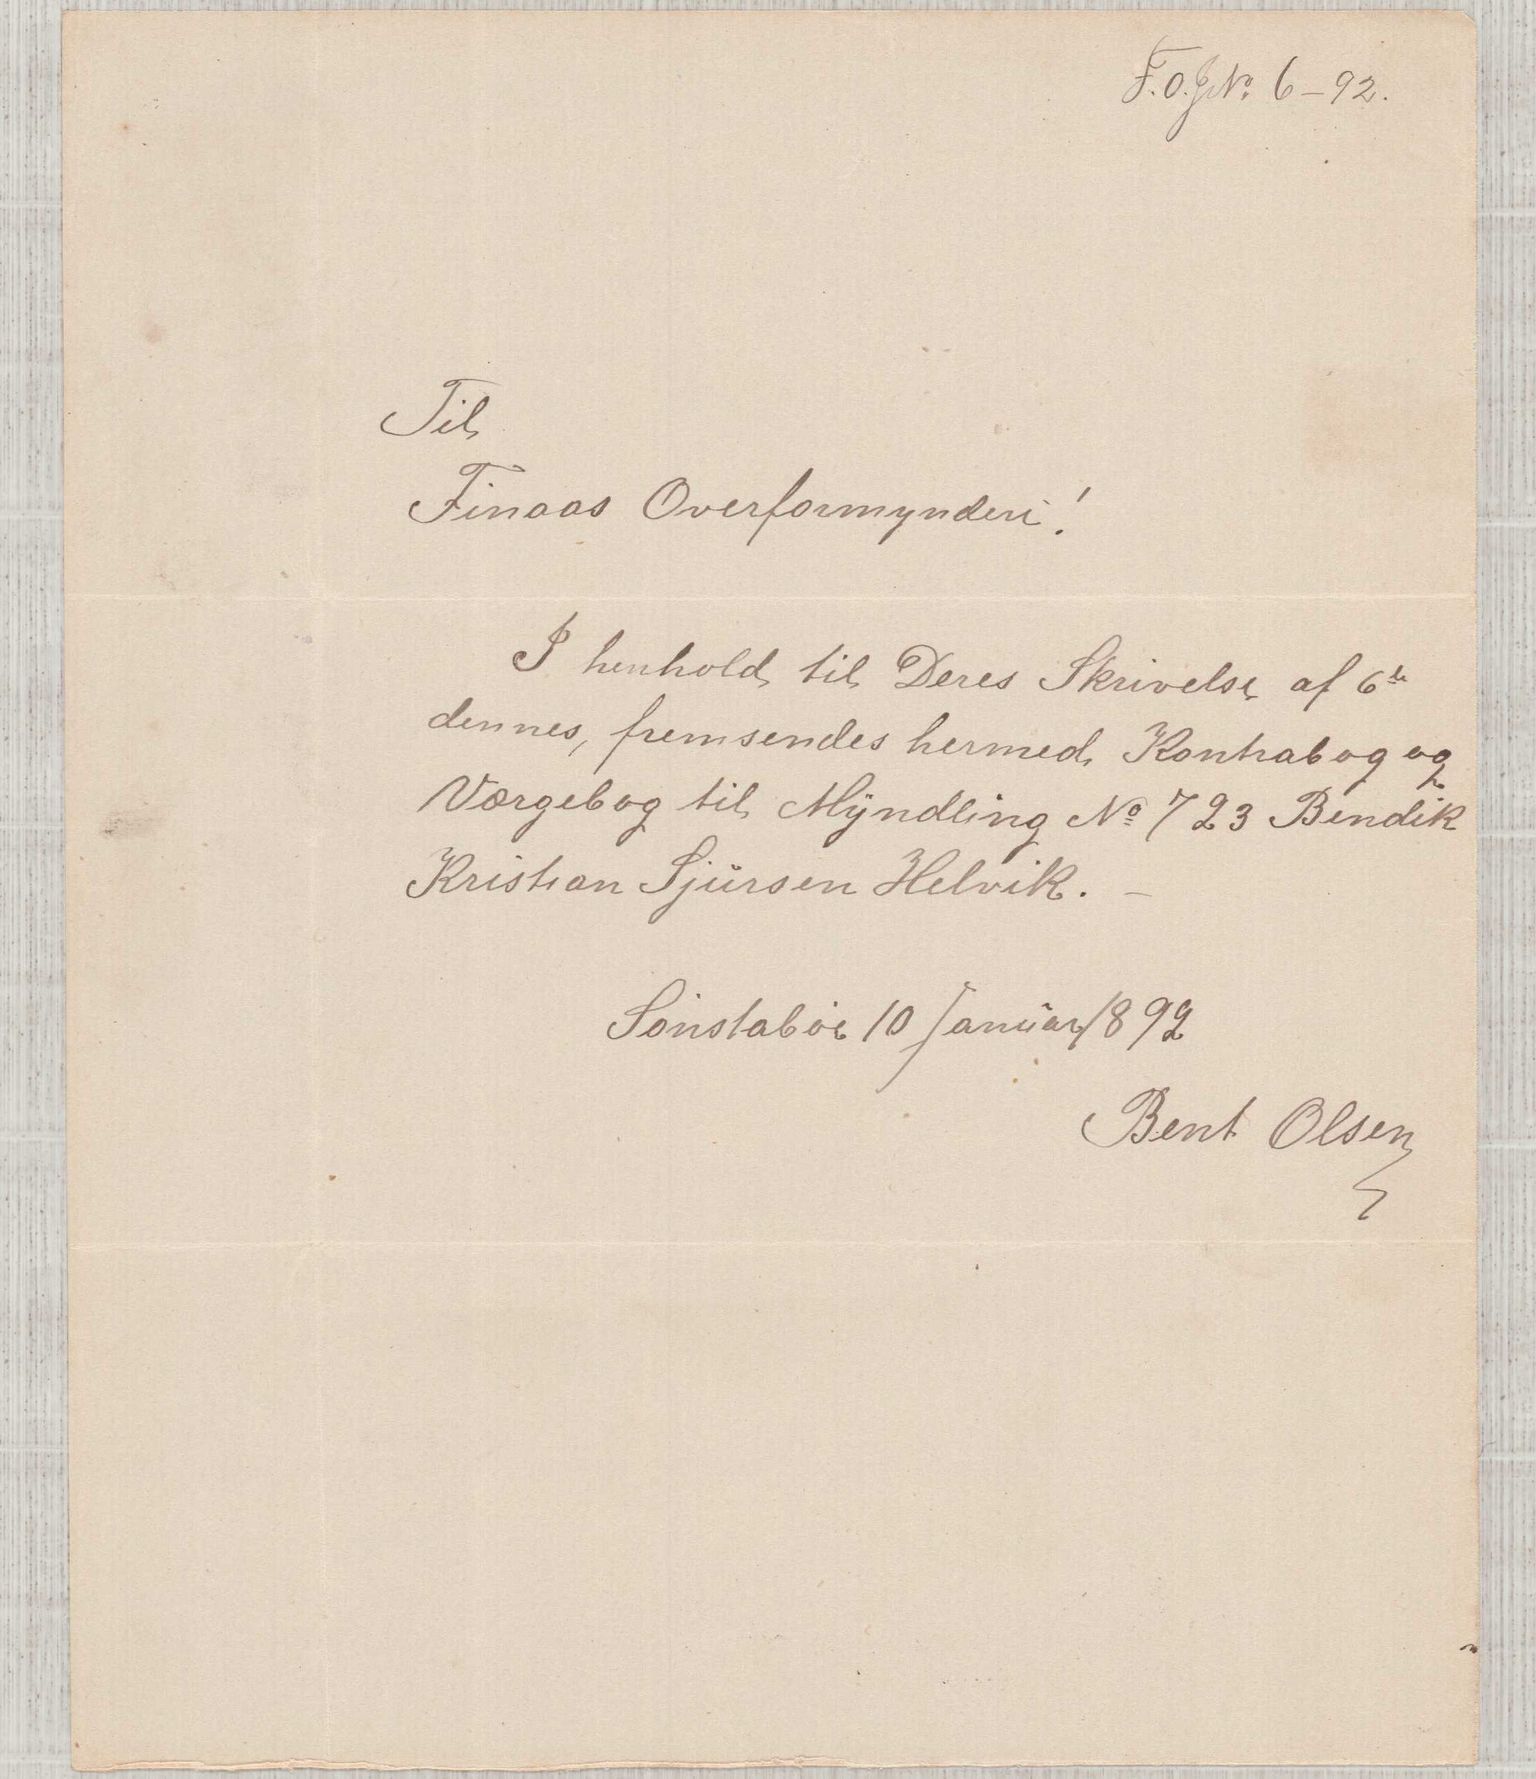 F.O.J.No. 6-92.
Til
Finaas Overformynderi!
I henhold til Deres Skrivelse af 6te
dennes, fremsendes hermed Kontrabog og
Værgebog til Myndling No 723 Bendik
Kristian Sjursen Helvik. -
Sønstabøe 10 Januar 1892
Bent Olsen